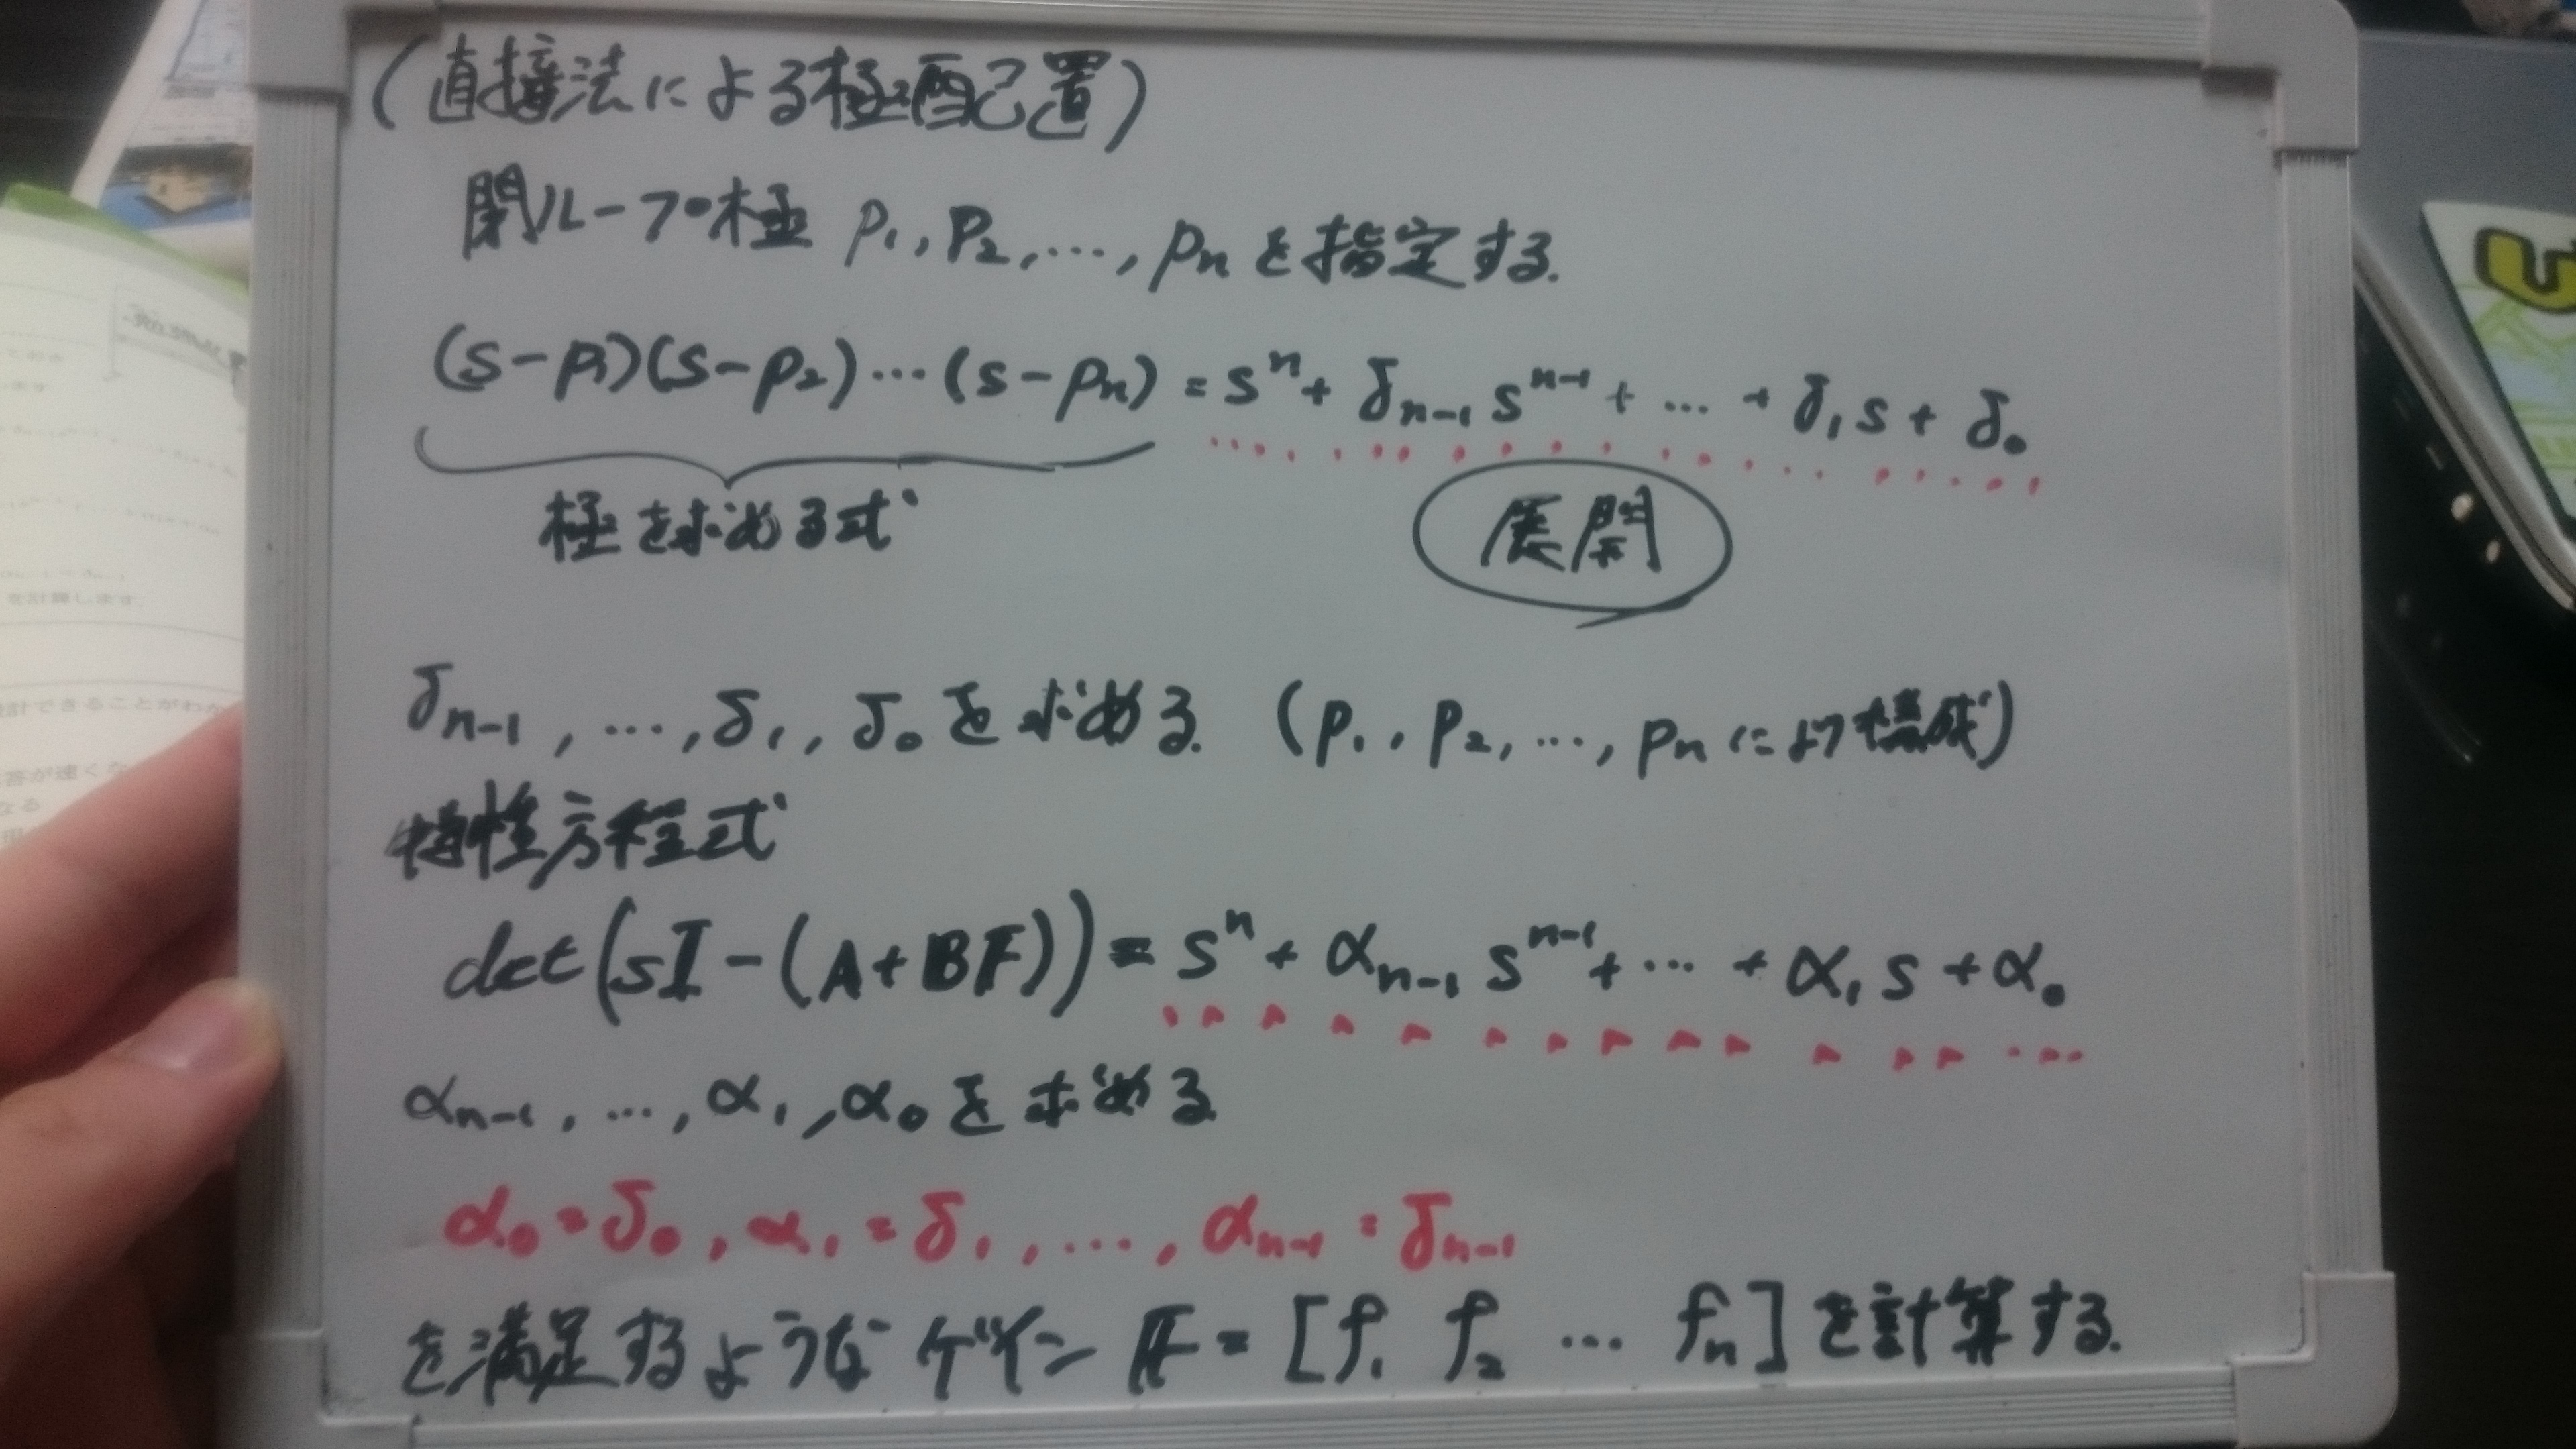 (直接法による極配置)
閉ループ極 p₁, p₂, …, pₙ を指定する.
(s-p₁)(s-p₂)…(s-pₙ) = sⁿ + δₙ₋₁sⁿ⁻¹ + … + δ₁s + δ₀
極を求める式
展開
δₙ₋₁, …, δ₁, δ₀を求める. (p₁, p₂, …, pₙにより構成)
特性方程式
det(sI-(A+BF)) = sⁿ + αₙ₋₁sⁿ⁻¹ + … + α₁s + α₀
αₙ₋₁, …, α₁, α₀を求める.
α₀=δ₀, α₁=δ₁, …, αₙ₋₁=δₙ₋₁
を満足するようなゲイン F = [f₁ f₂ … fₙ]を計算する.
を計算します
計できることがわか
答が速くな
なる